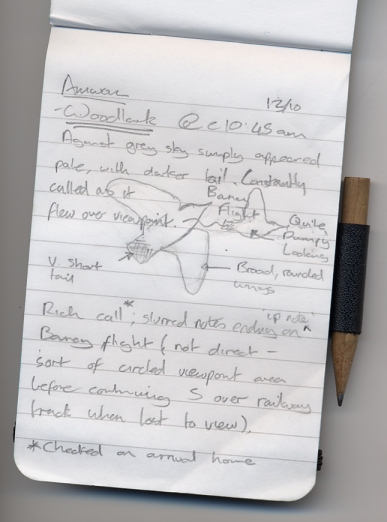 12/10
Woodlark @ c10:45am
Against grey sky simply appeared
pale, with darker tail. Constantly
called as it
flew over viewpoint.
Bouncy
Flight
Quite
Dumpy
Looking
V. short
tail
Broad, rounded
wings
Rich call*; slurred notes ending on 'up note'
Bouncy flight (not direct -
sort of circled viewpoint area
before continuing S over railway
track when lost to view).
*Checked on arrival home